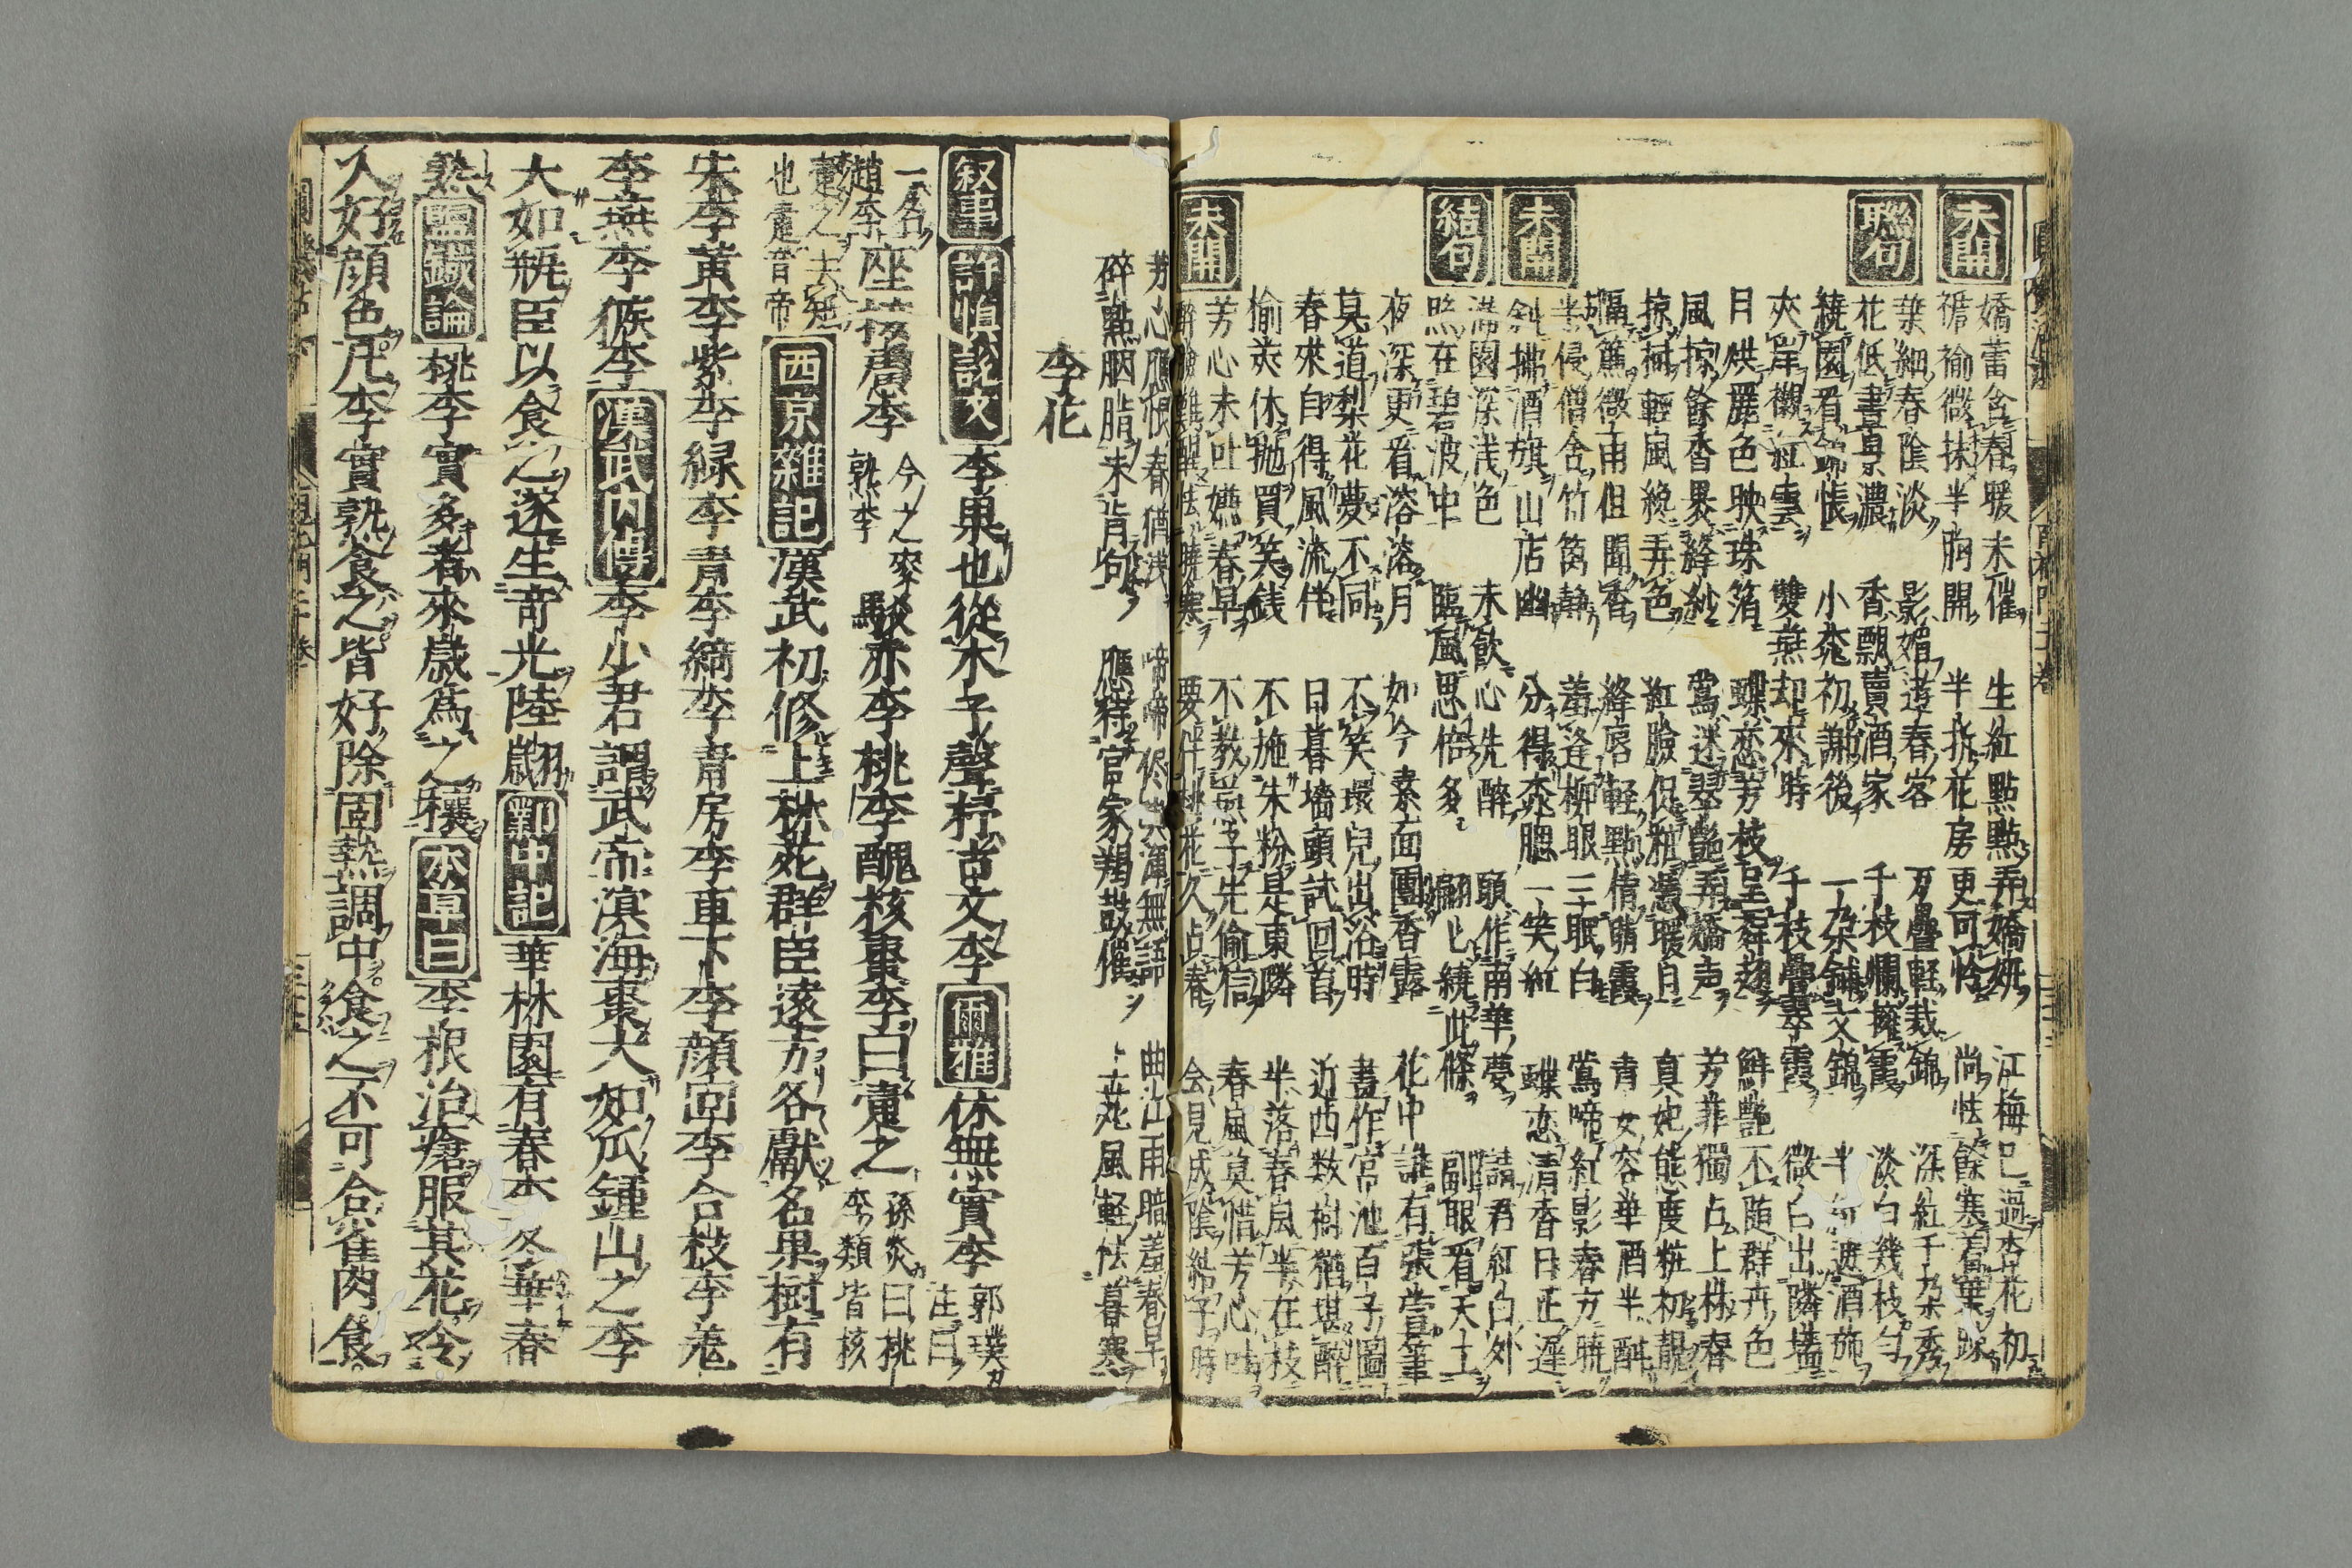 未開 嬌蕾含春暖未催 生紅點點弄嬌妍 江梅已過杏花初
襜褕微抹半胸開 半拆花房更可怜 尚怯餘寒着葉踈
聯句 葉細春陰淡 影媚遊春客 万疊輕裁錦 深紅千朶秀
花低晝景濃 香飄賣酒家 千枝爛擁霞 淡白幾枝勻
繞園看錦帳 小桃初謝後 一朶鋪文錦 半紅遮酒斾
夾岸襯紅雲 雙燕却來時 千枝疊翠霞 微白出隣墻
日烘麗色映珠箔 蝶恋芳枝呈舞趐 鮮艷不随群卉色
風掠餘香畧絳紗 鶯迷翠艷弄嬌声 芳菲獨占上林春
掠樹輕風纔弄色 紅臉促粧濃暖日 真妃態度粧初靚
隔簾微雨但聞香 絳唇輕點倩晴霞 青女容華酒半酣
半侵僧舍竹窓静 羞逢柳眼三眠白 鶯啼紅影春方暁
未開 斜拂酒旗山店幽 分得桃腮一笑紅 蝶恋清香日正遲
滿園深浅色 未飲心先醉 願作南華夢 請君紅白外
結句 照在碧波中 臨風思倍多 翩々繞此條 副眼看天工
夜深更看溶溶月 如今素面團香露 花中誰有張萱筆
莫道梨花夢不同 不笑環兒出浴時 晝作宮池百子圖
春來自得風流伴 日暮墻頭試回首 近西数樹猶堪醉
榆莢休抛買笑銭 不施朱粉是東隣 半落春風半在枝
芳心未吐嬌春早 不教燕子先偷信 春風莫惜芳心吐
未開 醉臉難醒怯暁寒 要伴桃花久占春 会見成陰結子時
芳心應恨春猶浅 啼啼終共渾無語 曲江雨暗羞春早
碎點胭脂未肯匀 應待官家羯鼓催 上苑風軽怯暮寒
李花
叙事 許慎説文 李菓也從木子聲杍古文李 爾雅 休無實李 郭璞註曰
一名趙李 座接慮李 今之麥熟李 駁赤李桃李醜核棗李曰疐之 孫炎曰桃李類皆核
疐之去㾍也疐音帝 西京雜記 漢武初修上林苑群臣遠方各獻名果樹有
朱李黄李紫李緑李青李綺李青房李車下李顔回李合枝李羌
李燕李猴李 漢武内傳 李少君謂武帝溟海棗大如瓜鍾山之李
大如瓶臣以食之遂生竒光陸翽 鄴中記 華林園有春李冬華春
熟 鹽鐵論 桃李實多者來歳爲之穰 本草曰 李根治瘡服其花令
人好顔色凡李實熟食之皆好除固熱調中食之不可合雀肉食